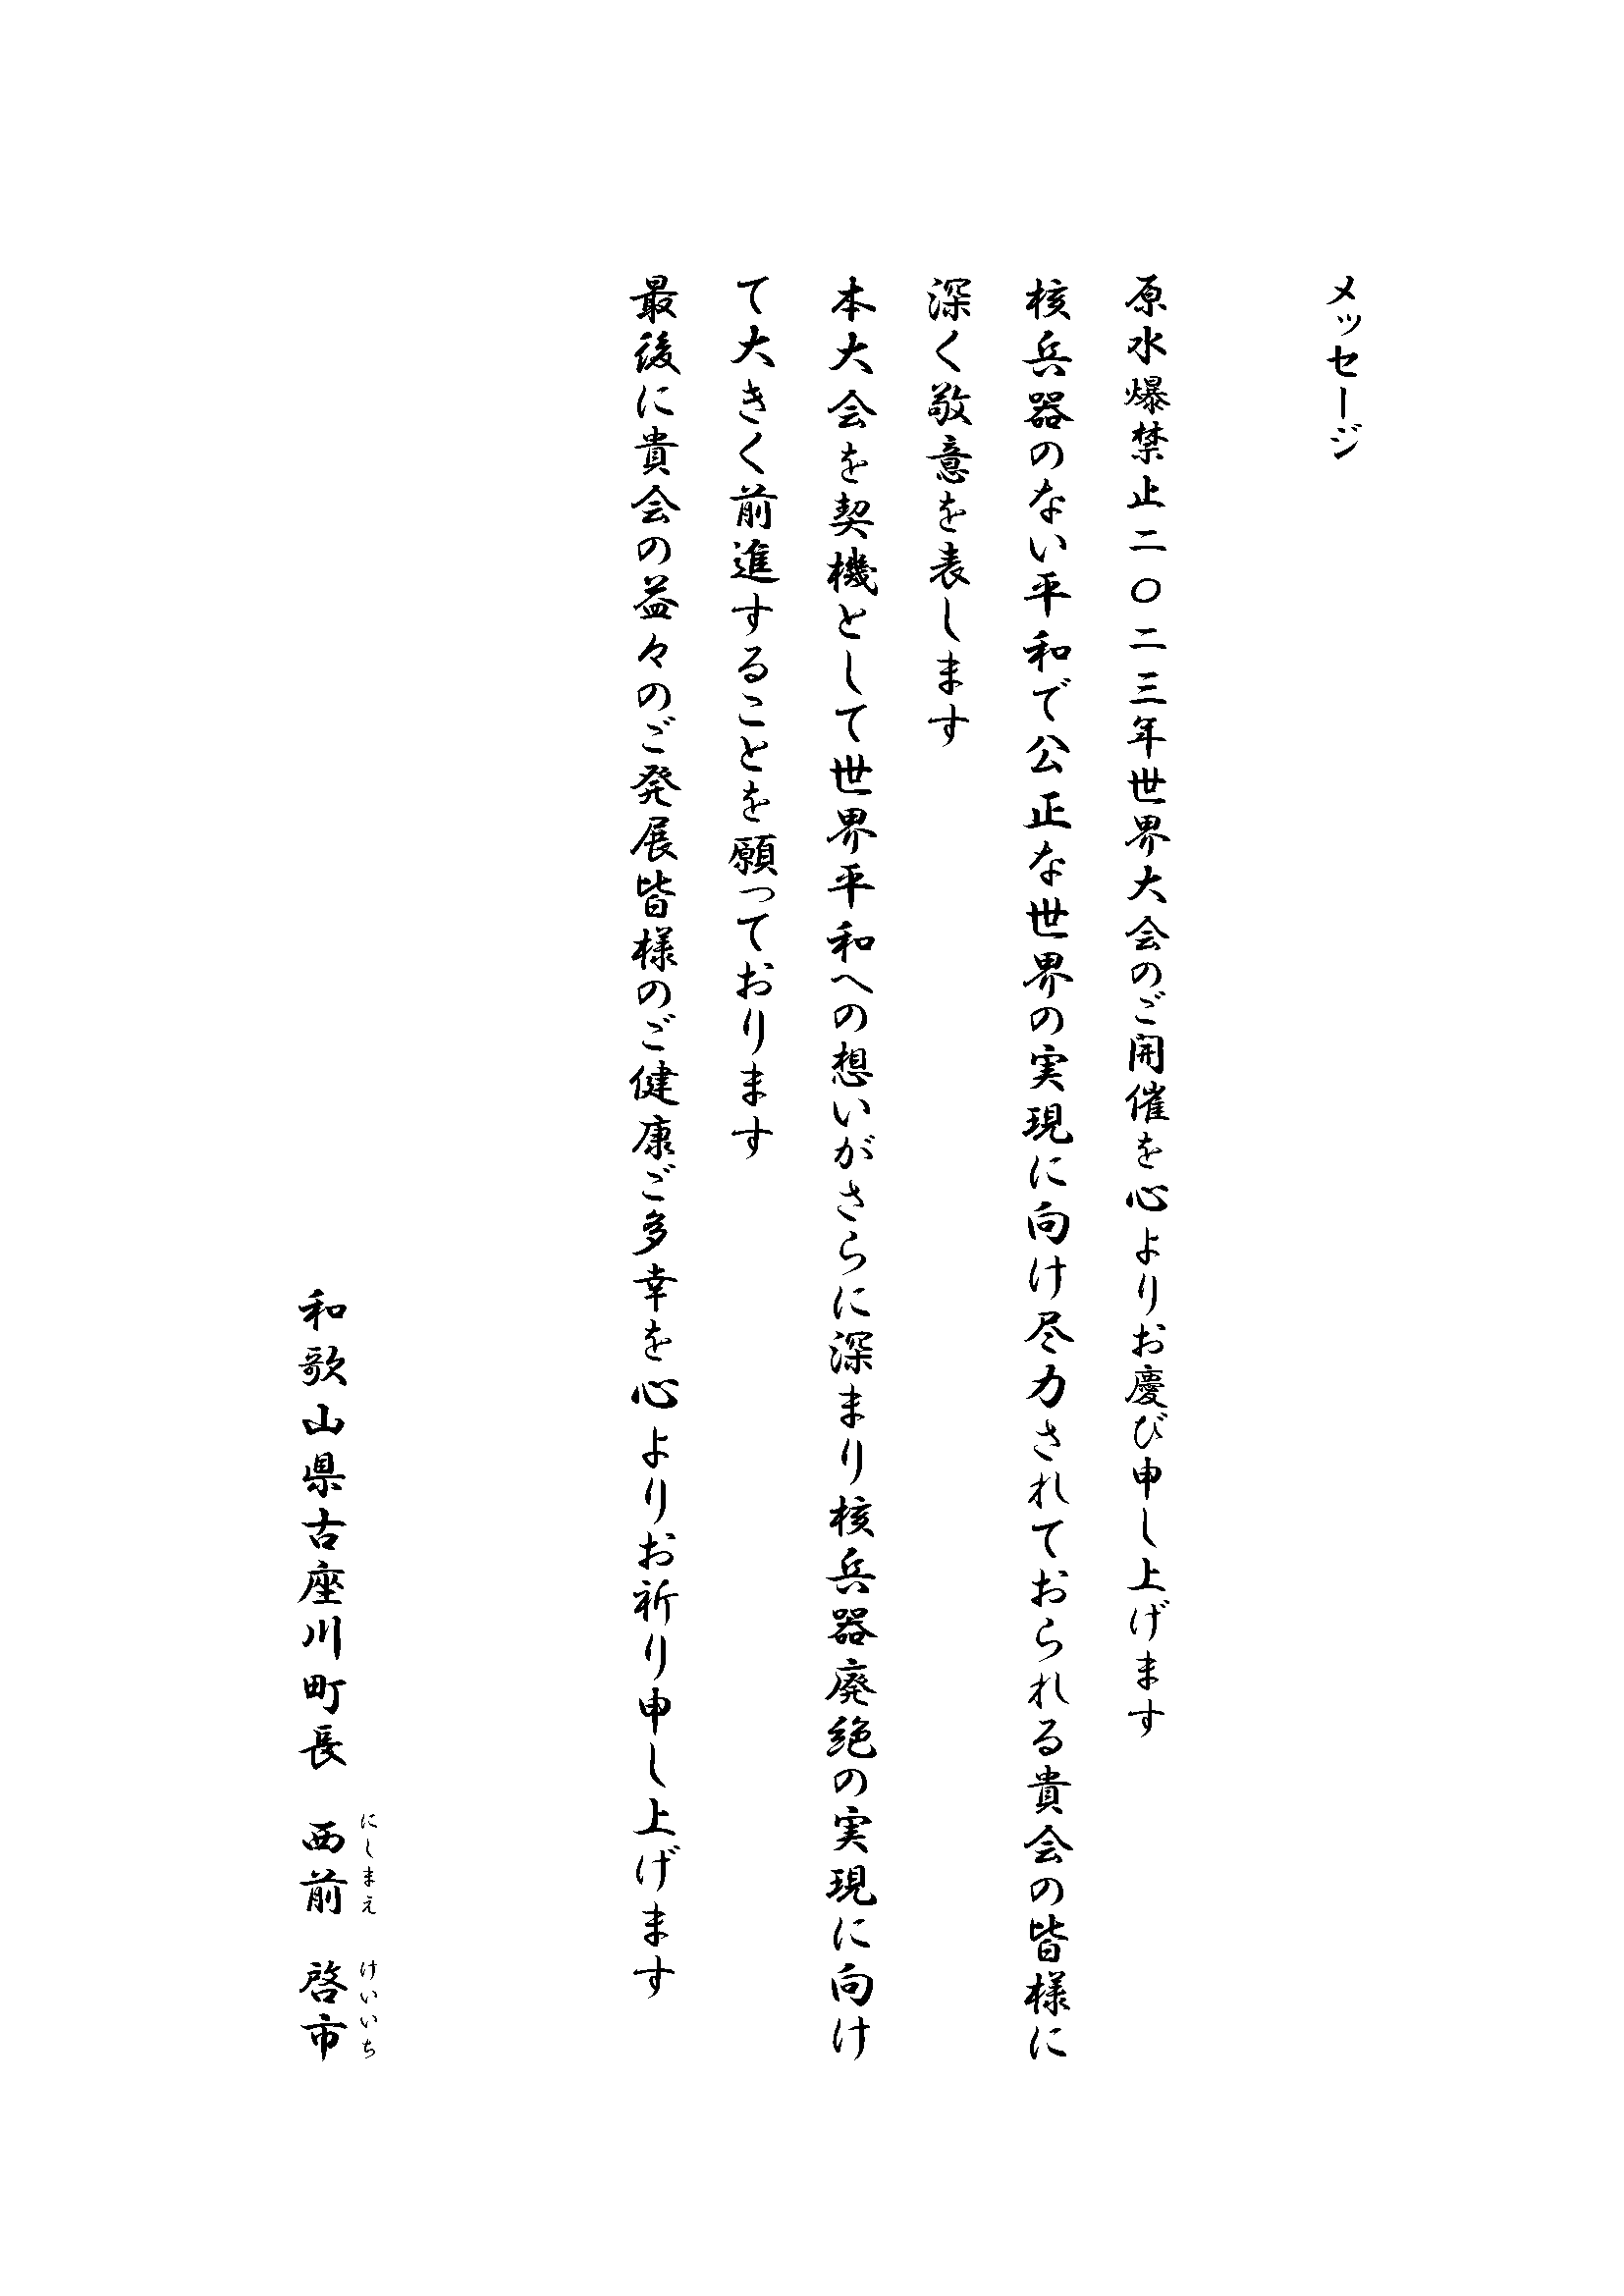 メッセージ
原水爆禁止二〇二三年世界大会のご開催を心よりお慶び申し上げます
核兵器のない平和で公正な世界の実現に向け尽力されておられる貴会の皆様に
深く敬意を表します
本大会を契機として世界平和への想いがさらに深まり核兵器廃絶の実現に向け
て大きく前進することを願っております
最後に貴会の益々のご発展皆様のご健康ご多幸を心よりお祈り申し上げます
にしまえ けいいち
和歌山県古座川町長 西前 啓市